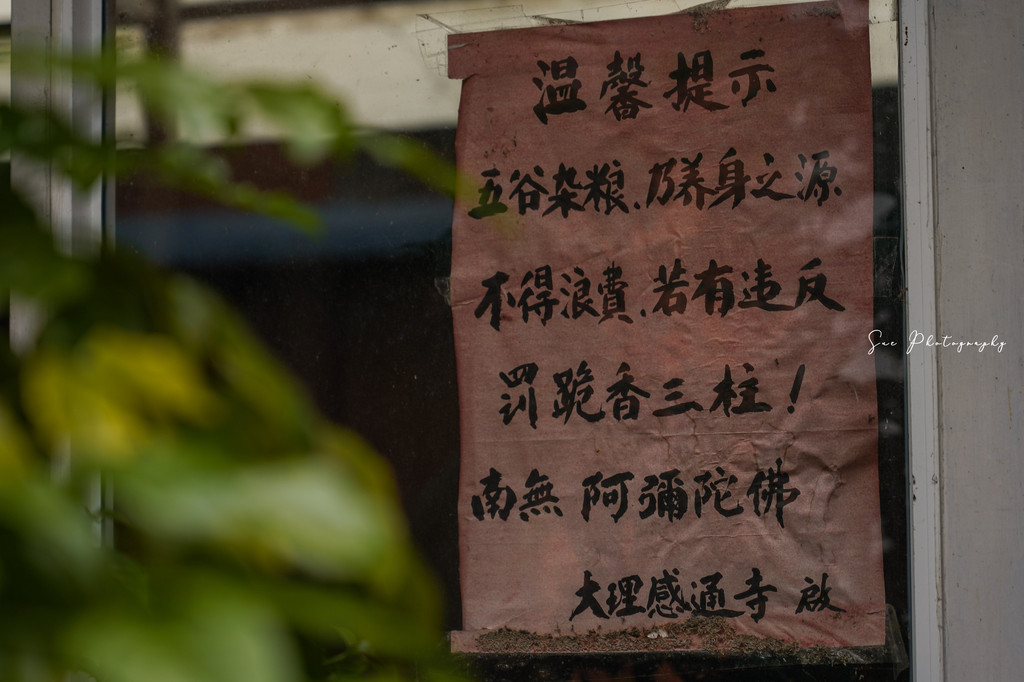 温馨提示
五谷杂粮.乃养身之源
不得浪費.若有违反
罚跪香三柱!
南無 阿彌陀佛
大理感通寺 啟
Sue Photography